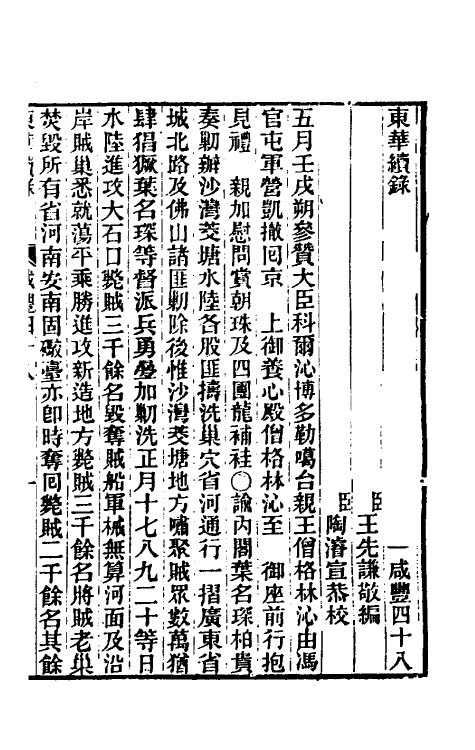 東華續錄
咸豐四十八
臣王先謙敬編
臣陶濬宣恭校
五月壬戌朔參贊大臣科爾沁博多勒噶台親王僧格林沁由馮
官屯軍營凱撤囘京　上御養心殿僧格林沁至　御座前行抱
見禮　親加慰問賞朝珠及四團龍補褂○諭內閣葉名琛柏貴
奏剿辦沙灣茭塘水陸各股匪擣洗巢穴省河通行一摺廣東省
城北路及佛山諸匪剿除後惟沙灣茭塘地方嘯聚賊眾數萬猶
肆猖獗葉名琛等督派兵勇疊加剿洗正月十七八九二十等日
水陸進攻大石口斃賊三千餘名毀奪賊船軍械無算河面及沿
岸賊巢悉就蕩平乘勝進攻新造地方斃賊三千餘名將賊老巢
焚毀所有省河南安南固礮臺亦卽時奪囘斃賊二千餘名其餘
東華續錄
咸豐四十八
一